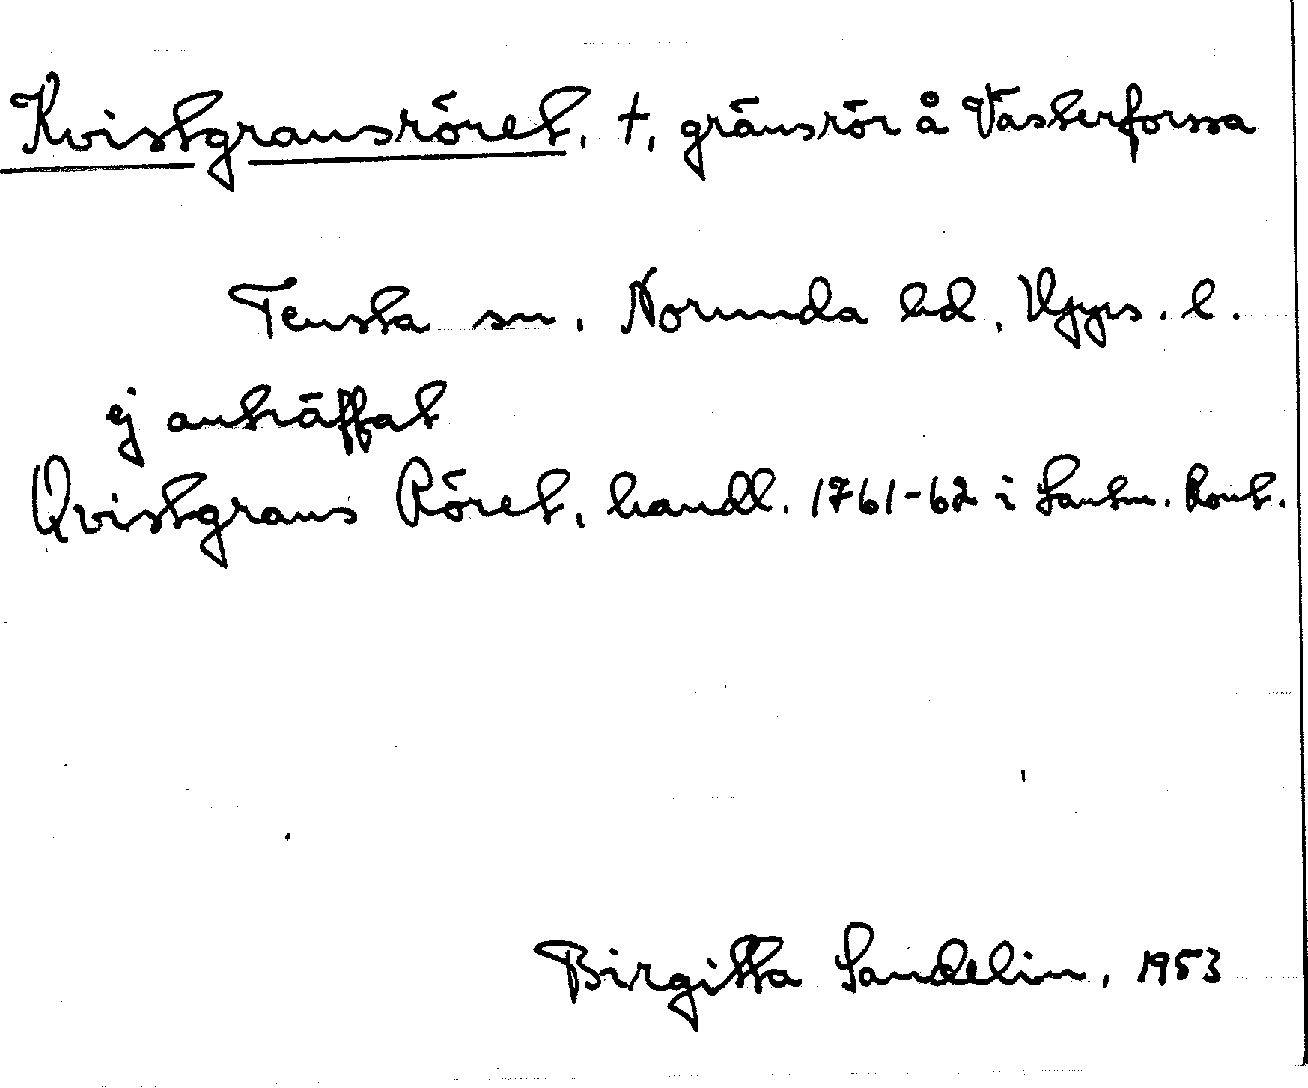 Kvistgransröret, †, gränsrör å Västerforssa
Tensta sn, Norunda hd, Upps. l.
ej anträffat
Qvistgrans Röret, handl. 1761-62 i Lantm. Kont.
Birgitta Sandelin, 1953